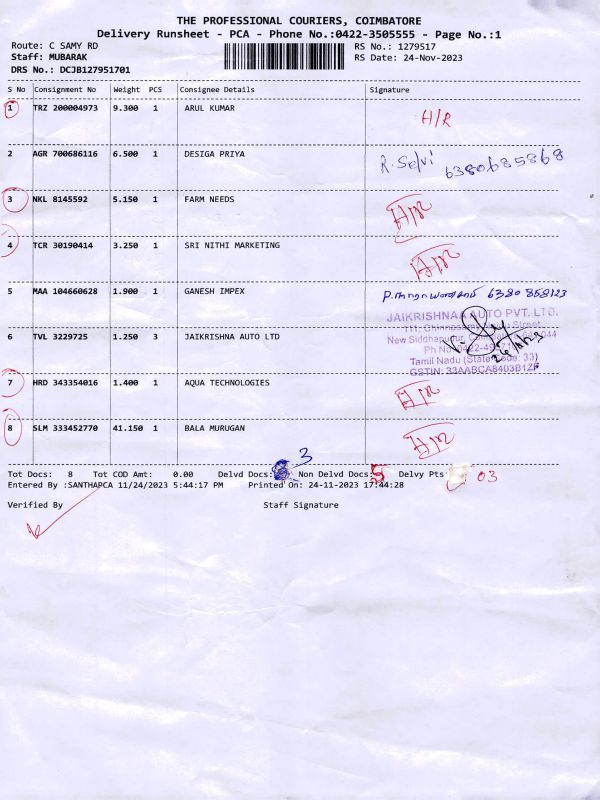 THE PROFESSIONAL COURIERS, COIMBATORE
Delivery Runsheet - PCA - Phone No.:0422-3505555 - Page No.:1
Route: C SAMY RD RS No.: 1279517
Staff: MUBARAK RS Date: 24-Nov-2023
DRS No.: DCJB127951701
S No Consignment No Weight PCS Consignee Details Signature
1 TRZ 200004973 9.300 1 ARUL KUMAR H/R
2 AGR 700686116 6.500 1 DESIGA PRIYA R. Selvi 6380685868
3 NKL 8145592 5.150 1 FARM NEEDS H/R
4 TCR 30190414 3.250 1 SRI NITHI MARKETING H/R
5 MAA 104660628 1.900 1 GANESH IMPEX 6380 858123
JAIKRISHNAA AUTO PVT. LTD.
111, Chinnasamy Naidu Street,
6 TVL 3229725 1.250 3 JAIKRISHNA AUTO LTD New Siddhapudur,
Ph No
Tamil Nadu (State Code: 33)
GSTIN: 33AABCA8403B1ZF
7 HRD 343354016 1.400 1 AQUA TECHNOLOGIES H/R
8 SLM 333452770 41.150 1 BALA MURUGAN H/R
3
Tot Docs: 8 Tot COD Amt: 0.00 Delvd Docs: Non Delvd Docs: 5 Delvy Pts 03
Entered By :SANTHAPCA 11/24/2023 5:44:17 PM Printed On: 24-11-2023 17:44:28
Verified By Staff Signature